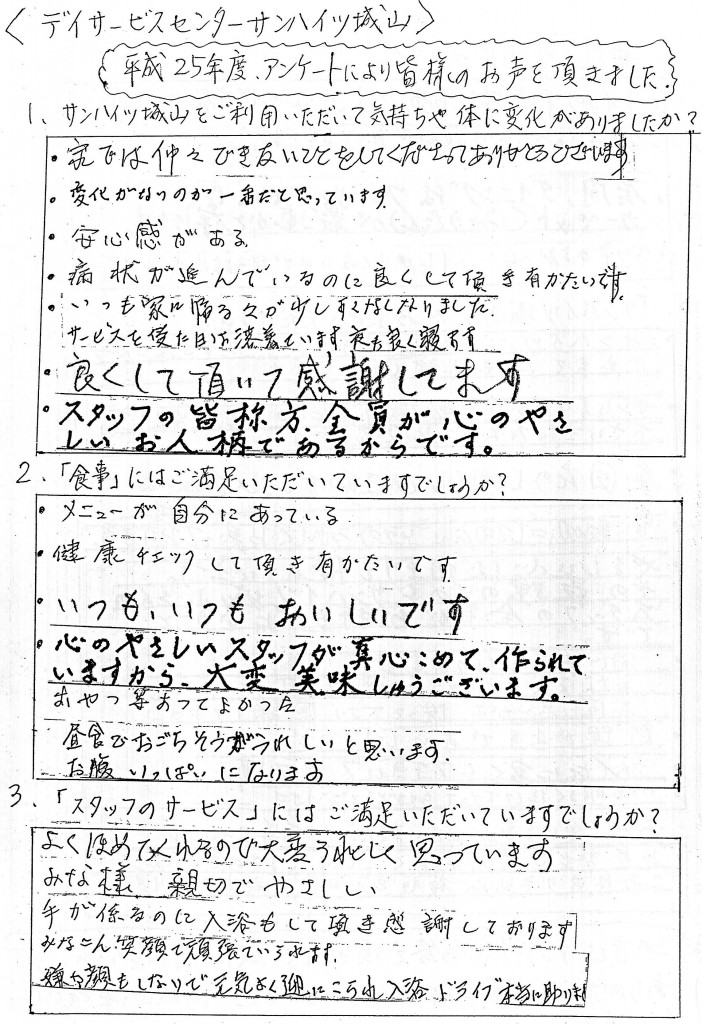 〈デイサービスセンターサンハイツ城山〉
平成25年度、アンケートにより皆様のお声を頂きました。
1、サンハイツ城山をご利用いただいて気持ちや体に変化がありましたか?
・家では仲々できないことをしてくださってありがとうございます
・変化がないのが一番だと思っています
・安心感がある
・病状が進んでいるのに良くして頂き有がたいです。
・いつも家に帰る々が少しすくなくなりました。
サービスを使た日は落着ています夜も良く寝ます
・良くして頂いて感謝してます
・スタッフの皆様方、全員が心のやさ
しいお人柄であるからです。
2、「食事」にはご満足いただいていますでしょうか?
・メニューが自分にあっている
・健康チェックして頂き有がたいです
・いつも、いつもおいしいです
・心のやさしいスタッフが真心こめて、作られて
いますから、大変美味しゅうございます。
おやつ等あってよかった
昼食でおごちそうがうれしいと思います.
お腹いっぱいになります
3、「スタッフのサービス」にはご満足いただいていますでしょうか?
よくほめてくれるので大変うれしく思っています
みな様 親切でやさしい
手が係るのに入浴もして頂き感謝しております
みなさん笑顔で頑張ていられます.
嫌な顔もしないで元気よく迎にこられ入浴ドライブ本当に助りま